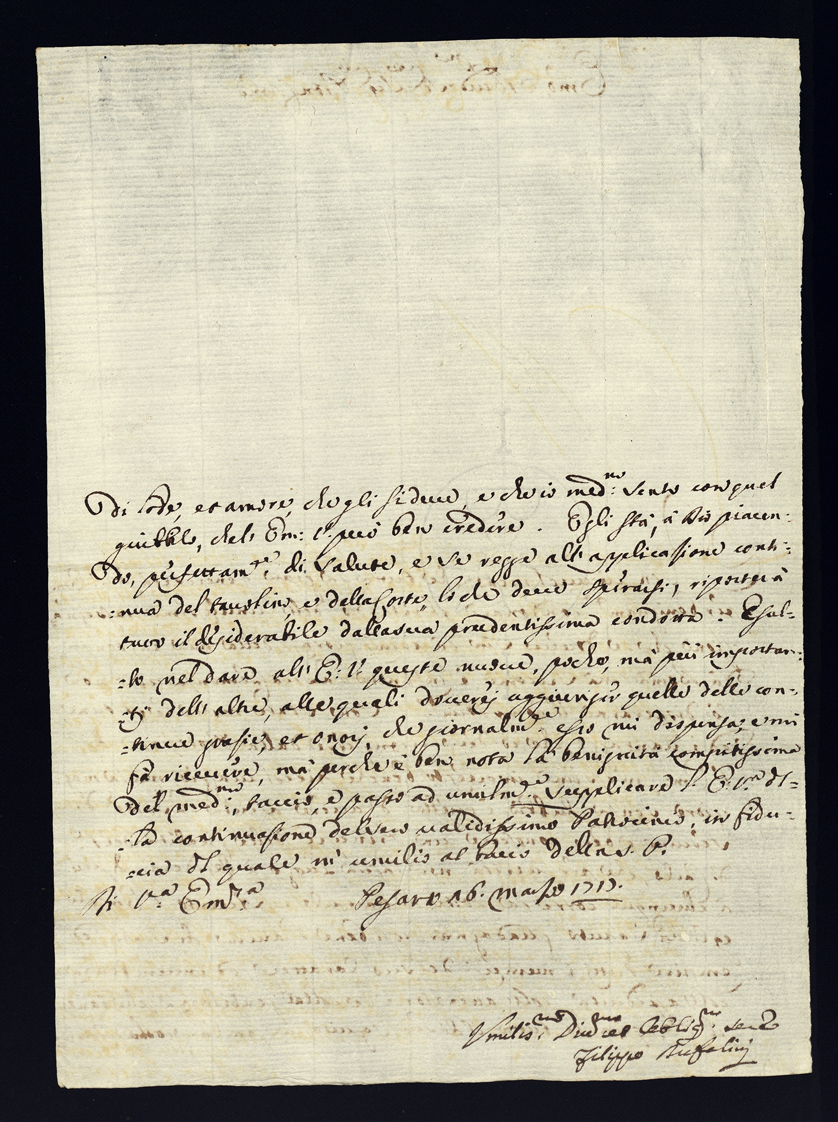 Di lode, et amore, che gli si deve, e che io med:mo sento con quel
giubblo, che l'Em: V. può ben credere. Egli stà, à Dio piacen:
do, perfettam.te di salute, e se regge all'applicasione conti:
:nua del tavolino e della Corte, lo che deve sperarsi, riporterà
tutto il desiderabile dalla sua prudentissima condotta. Esul:
:to nel dare all'E: V. queste nuove, poche, mà più importan:
:ti dell'altre, alle quali doverej aggiungiere quelle delle con:
:tinue grasie, et onorj, che giornalm.te esso mi dispensa, e mi
fà ricevere, mà perche è ben nota la benignità compitissima
del med:mo, taccio, e passo ad umilm.te supplicare l'E: V.ra d'l:
:la continuasione del suo validissimo Patrocinio, in fidu:
:cia d'l quale m'umilio al bacio della s. P.
Di V.a Em.za Pesaro 16. marso 1717.
Umilis:mo Div:mo et Obblig:mo ser.e
Filippo